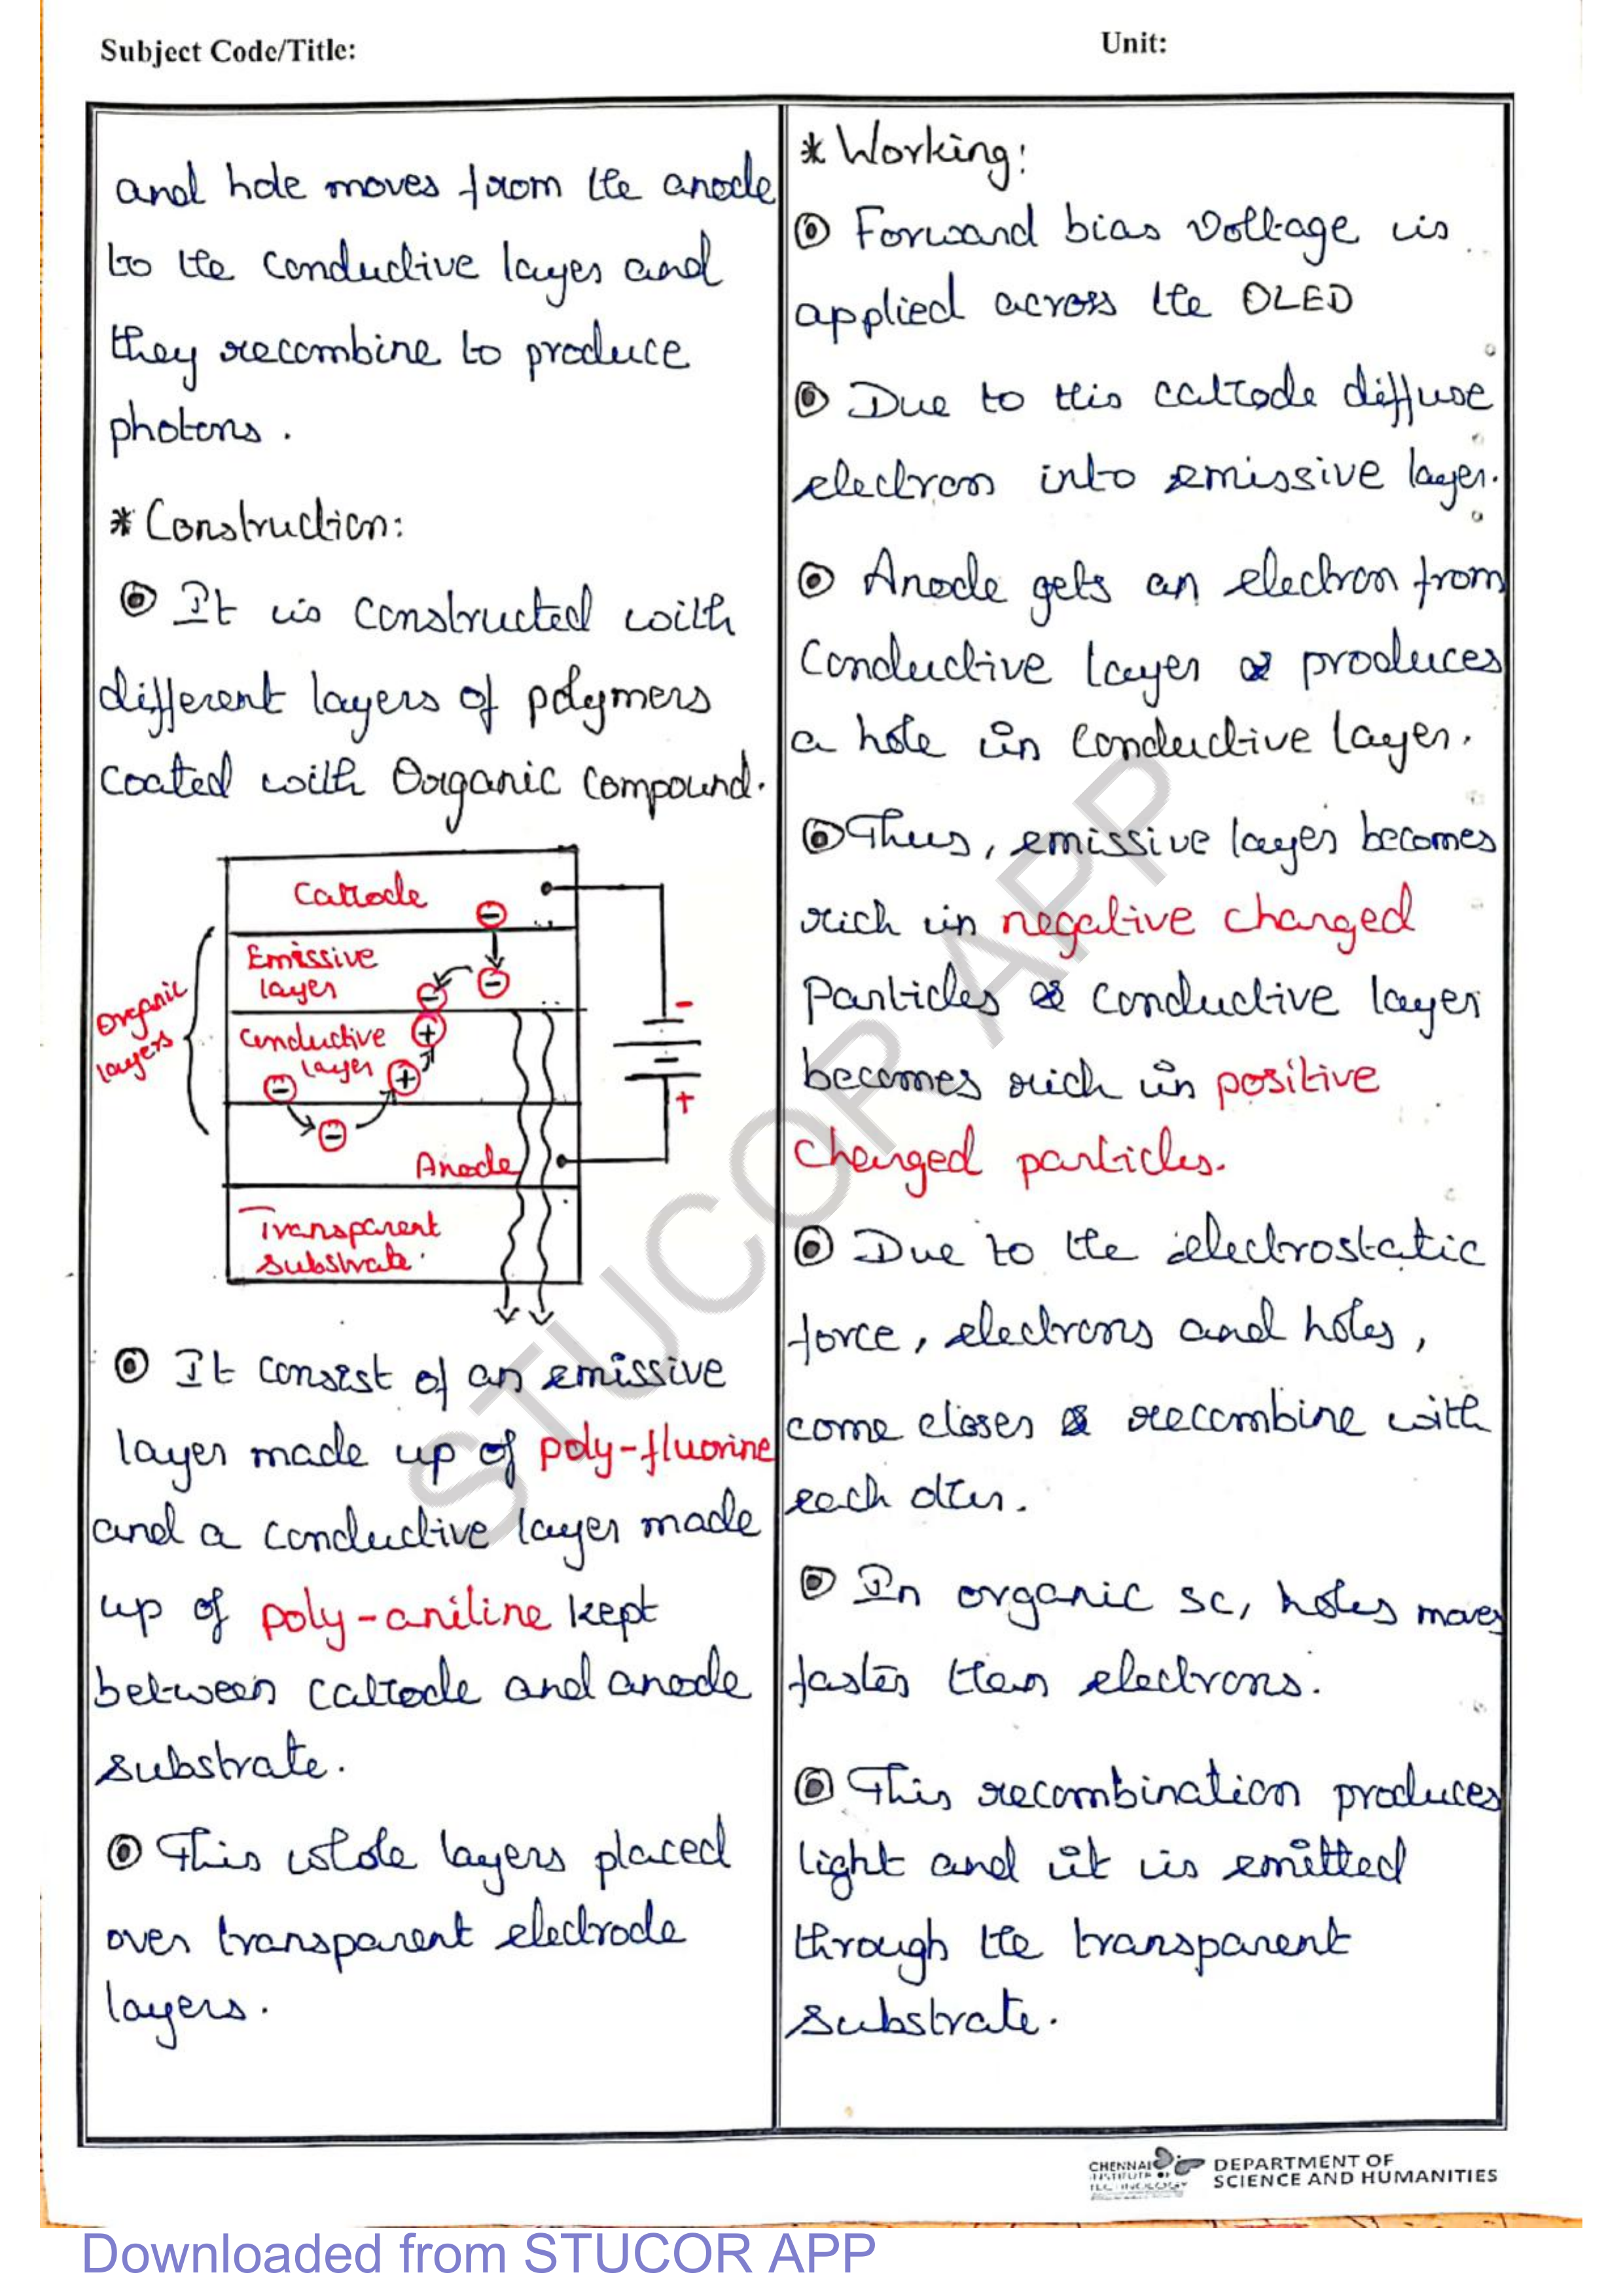 Subject Code/Title:
Unit:
and hole moves from the anode
to the conductive layer and
they recombine to produce
photons.
* Construction:
It is constructed with
different layers of polymers
coated with Organic compound.
Cathode
Emissive
layer
Conductive
layer
Organic
layers
Anode
Transparent
substrate.
-
+
It consist of an emissive
layer made up of poly-fluorine
and a conductive layer made
up of poly-aniline kept
between cathode and anode
substrate.
This whole layers placed
over transparent electrode
layers.
* Working:
Forward bias voltage is
applied across the OLED
Due to this cathode diffuse
electron into emissive layer.
Anode gets an electron from
Conductive layer & produces
a hole in conductive layer.
Thus, emissive layer becomes
rich in negative charged
Particles & conductive layer
becomes rich in positive
charged particles.
Due to the electrostatic
force, electrons and holes,
come closer & recombine with
each other.
In organic sc, holes moves
faster than electrons.
This recombination produces
light and it is emitted
through the transparent
substrate.
STUCOR APP
CHENNAI
INSTITUTE OF
TECHNOLOGY
DEPARTMENT OF
SCIENCE AND HUMANITIES
Downloaded from STUCOR APP